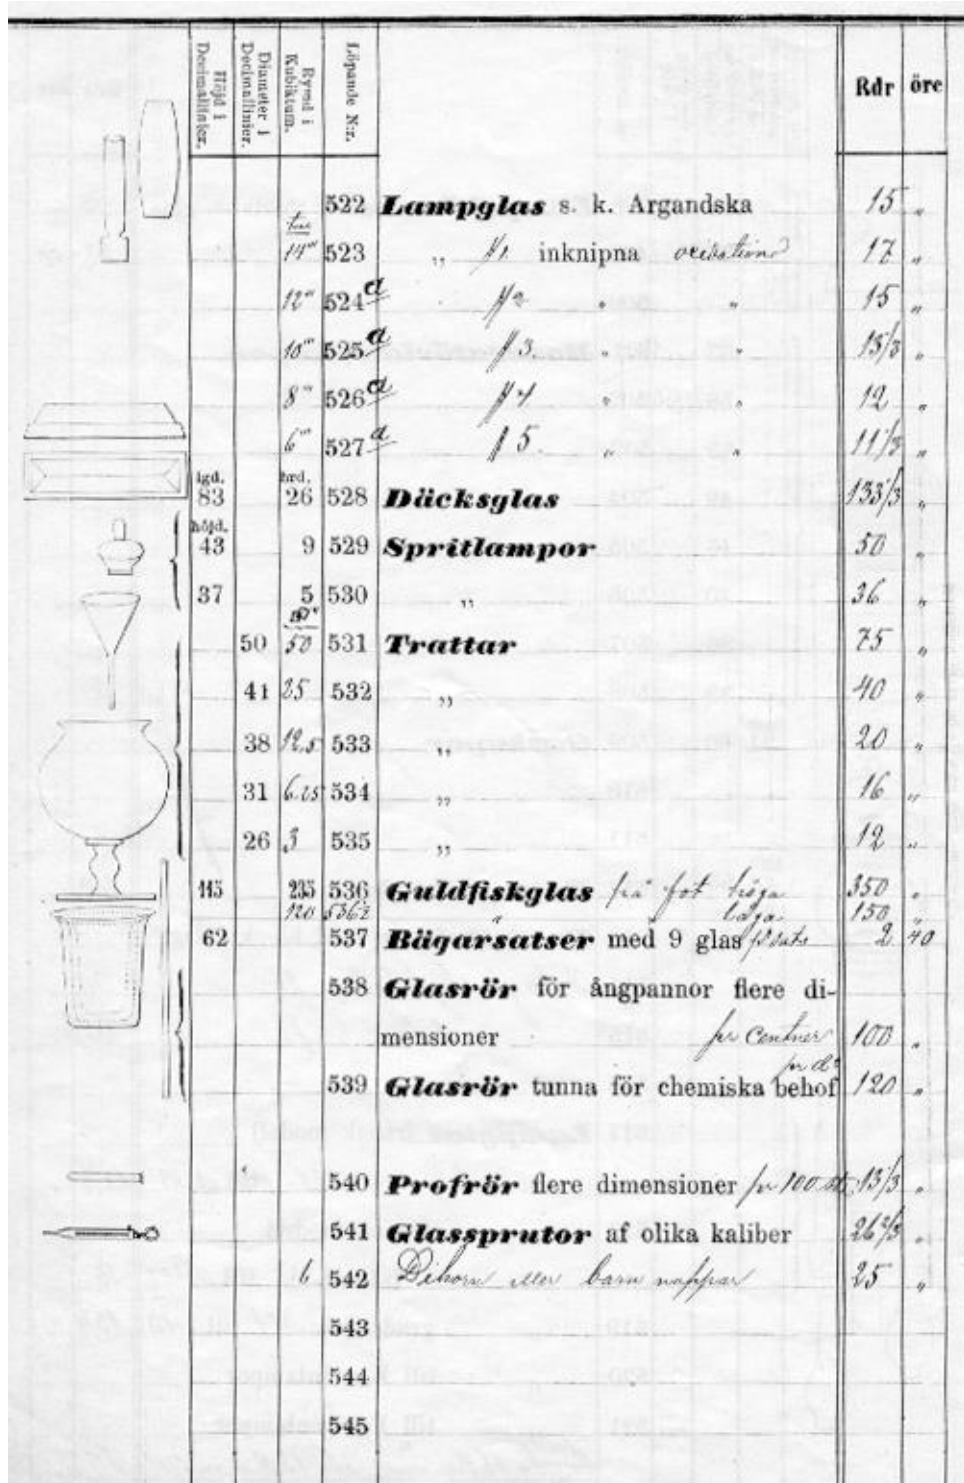 Höjd i Decimallinier. Diameter i Decimallinier. Rymd i Kubiktum. Löpande N:r. Rdr öre
522 Lampglas s. k. Argandska 15 „
14''' 523 „ inknipna 17 „
12''' 524 a „ „ 15 „
10''' 525 a 3 „ „ 13/3 „
8''' 526 a 4 „ „ 12 „
6''' 527 a 5. „ „ 11/3 „
lgd. 83 brd. 26 528 Däcksglas 133/3 „
höjd. 43 9 529 Spritlampor 50 „
37 5 530 „ 36 „
50 50 531 Trattar 75 „
41 25 532 „ 40 „
38 12,5 533 „ 20 „
31 6.25 534 „ 16 „
26 3 535 „ 12 „
115 235 536 Guldfiskglas på fot höga 350 „
120 536 2 „ låga 150 „
62 537 Bägarsatser med 9 glas 2 40
538 Glasrör för ångpannor flere di-
mensioner pr Centner 100 „
pr do
539 Glasrör tunna för chemiska behof 120 „
540 Profrör flere dimensioner pr 100 st 13/3 „
541 Glassprutor af olika kaliber 26 2/3 „
6 542 Dihorn eller barn nappar 25 „
543
544
545